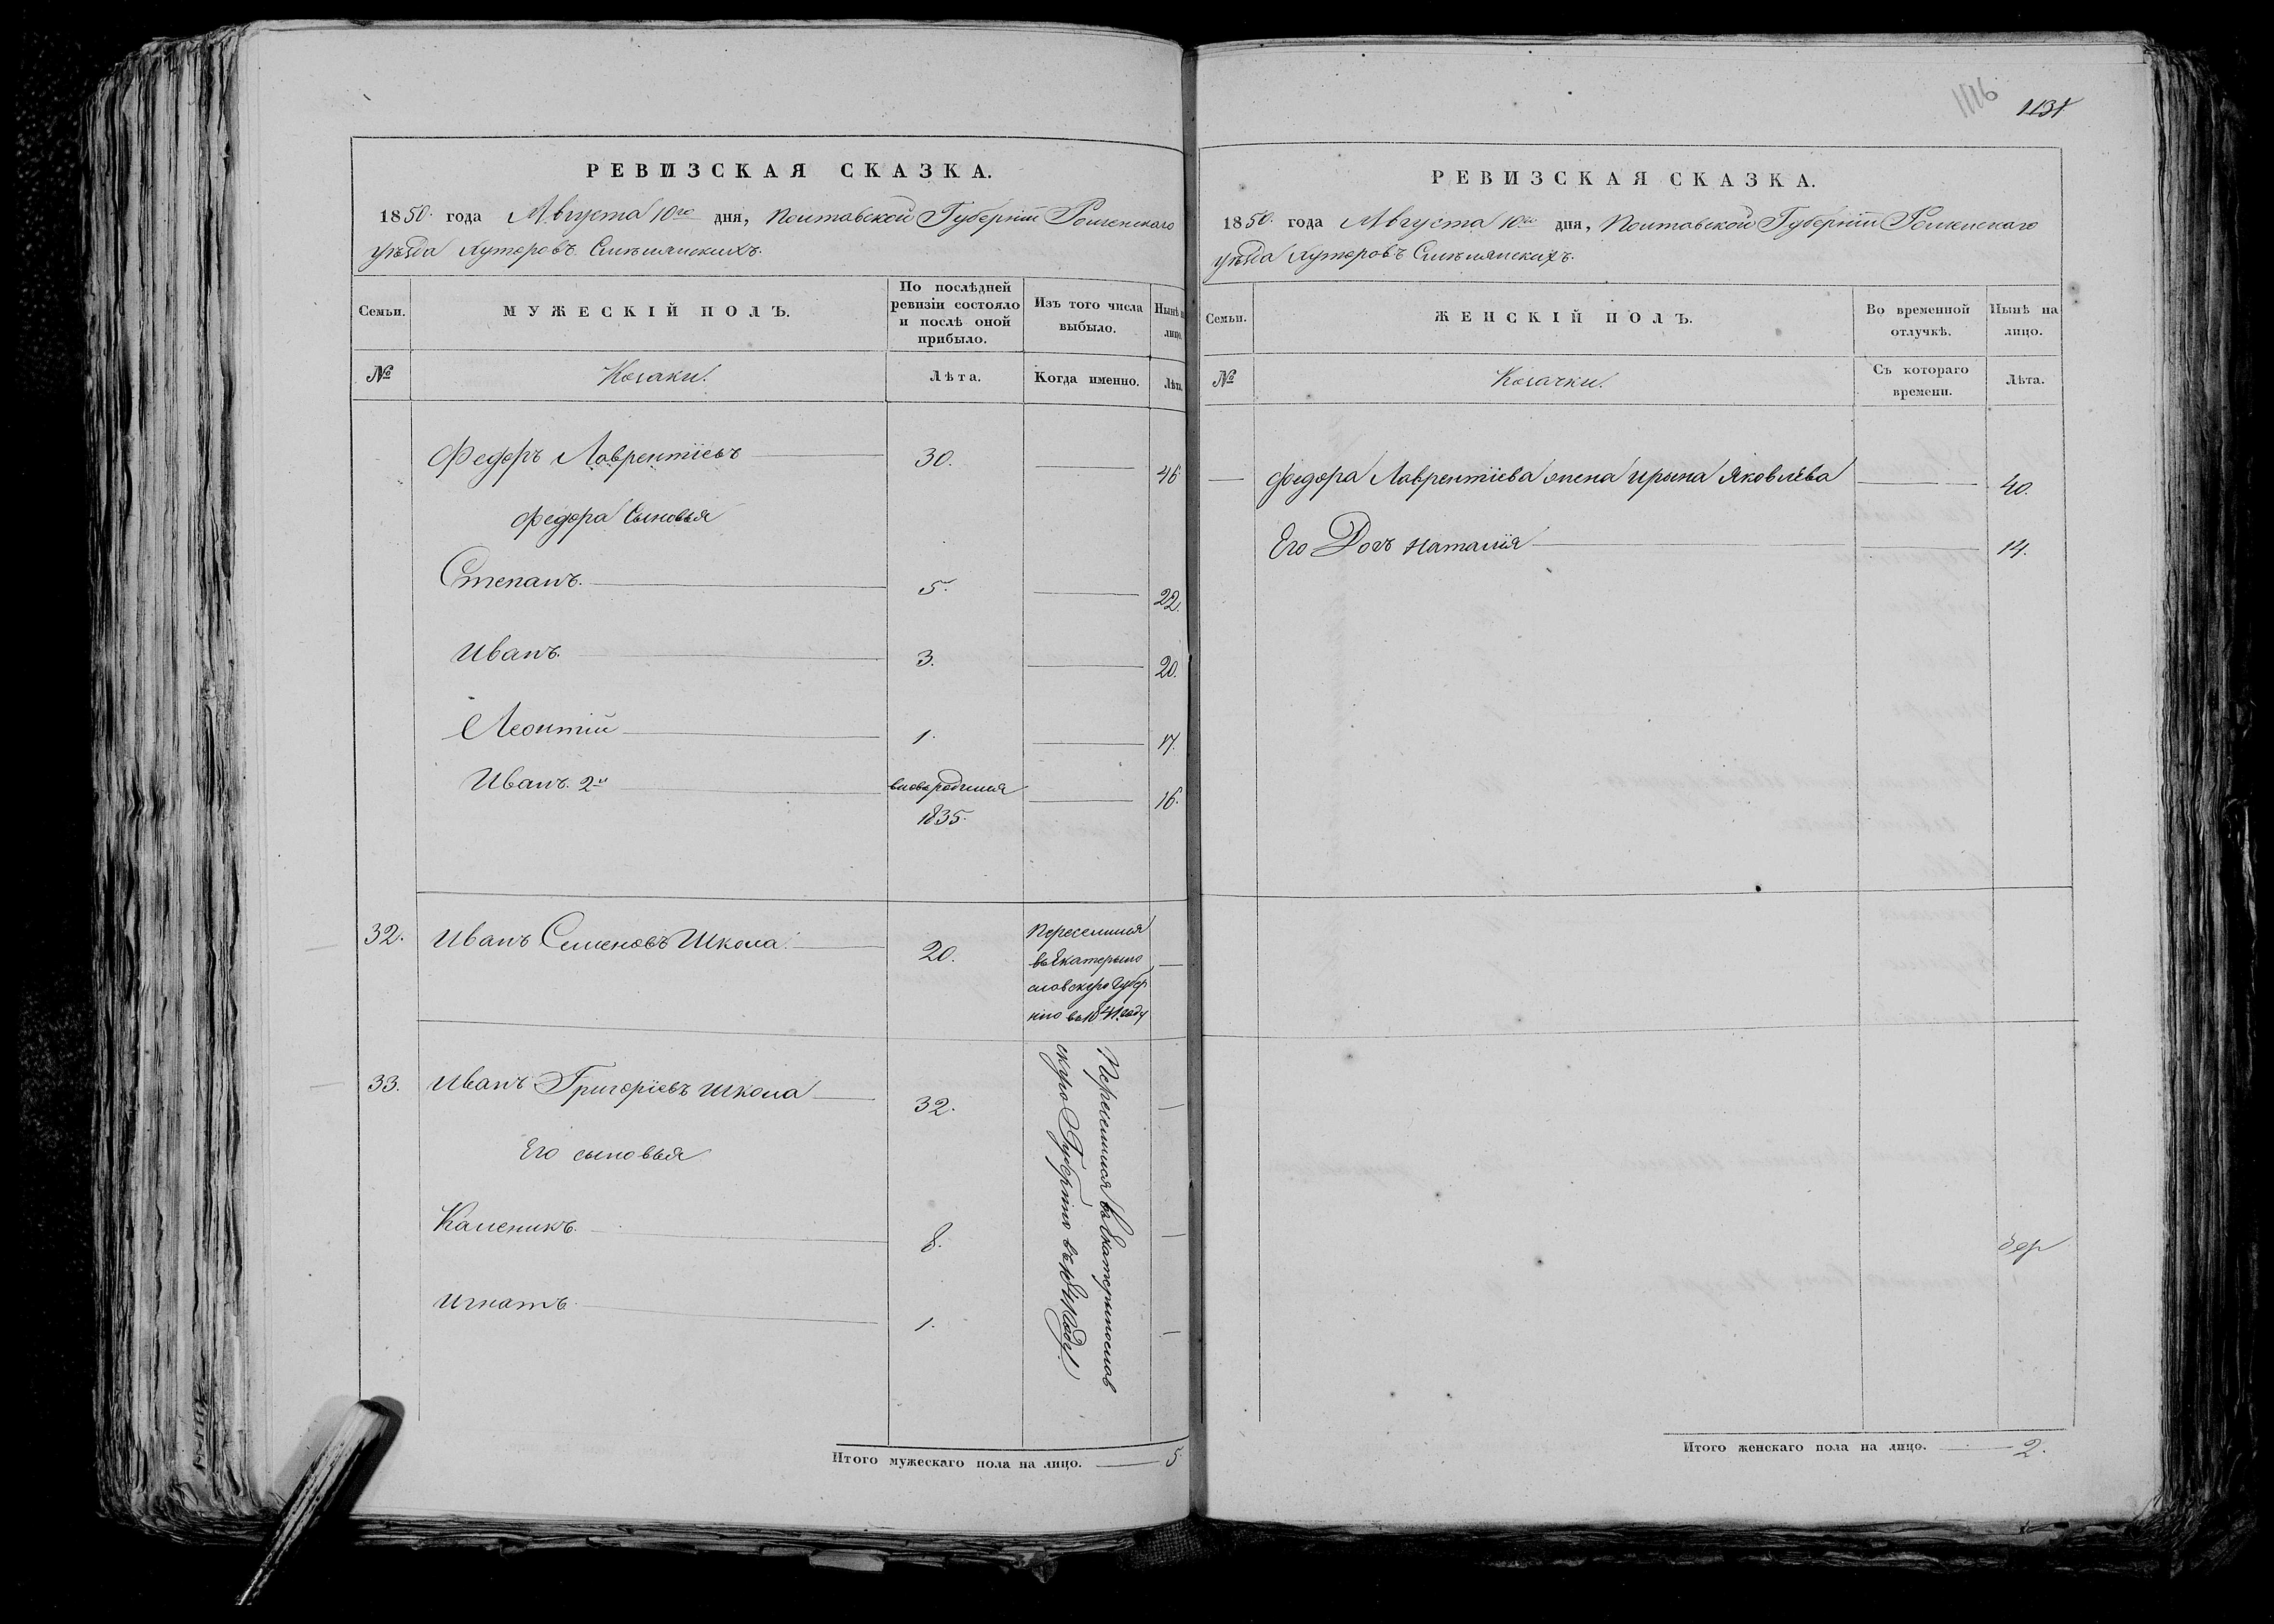 РЕВИЗСКАЯ СКАЗКА.
1850. года Августа 10го дня, Полтавской Губерніи Роменского
уѣзда Хуторовъ Смѣлянскихъ.
Семьи.
МУЖЕСКІЙ ПОЛЪ.
По послѣдней
ревизіи состояло
и послѣ оной
прибыло.
Изъ того числа
выбыло.
Нынѣ на
лицо.
№
Козаки.
Лѣта.
Когда именно.
Лѣта.
Федоръ Лаврентіевъ 30. 46
Федора Сыновья
Степанъ. 5. 22.
Иванъ. 3. 20.
Леонтій 1. 17.
Иванъ. 2й вновь родился 16.
1835.
32. Иванъ Семеновъ Школа. 20.
Переселился
въ Екатерыно
славскую Губер
нію въ 1841. году
33. Иванъ Григоріевъ Школа 32.
Его сыновья
Каленикъ. 8.
Игнатъ. 1.
Переселился въ Екатерынослав
скую Губернію въ 1841 Году
Итого мужескаго пола на лицо. 5.
1116
1131
РЕВИЗСКАЯ СКАЗКА.
1850. года Августа 10го дня, Полтавской Губерніи Роменского
уѣзда Хуторовъ Смѣлянскихъ.
Семьи.
ЖЕНСКІЙ ПОЛЪ.
Во временной
отлучкѣ.
Нынѣ на
лицо.
№
Козачки.
Съ котораго
времени.
Лѣта.
Федора Лаврентіева жена Ирына Яковлева 40.
Его Дочь Наталія 14.
Итого женскаго пола на лицо. 2.